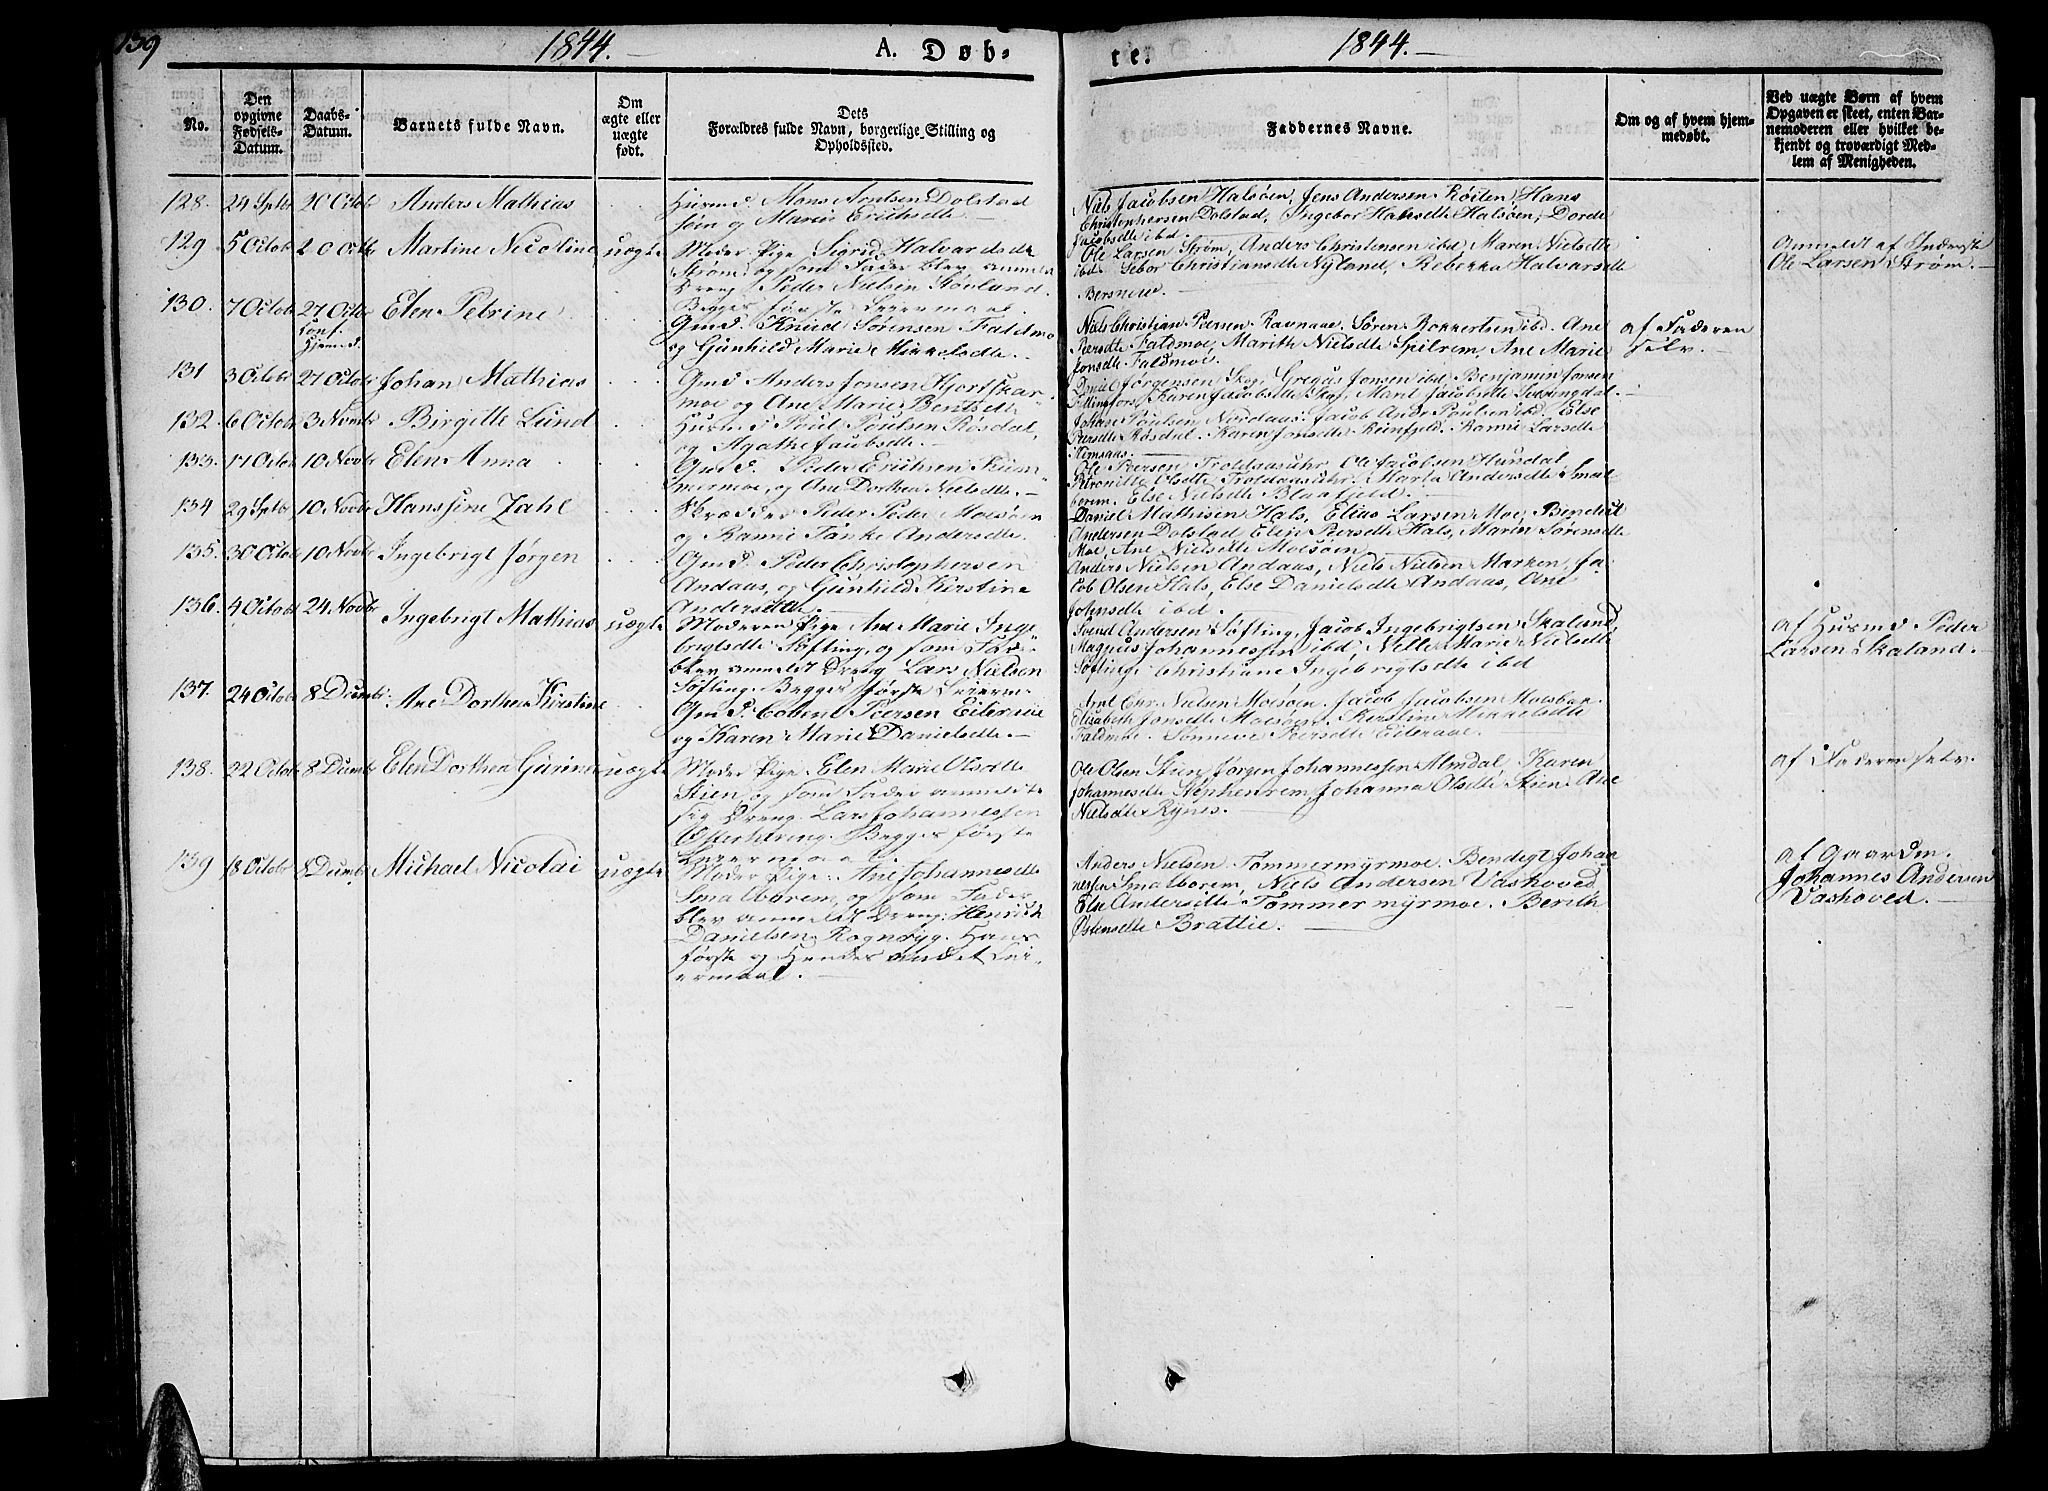 139
1844.
A. Døb-
te.
1844.
No.
Den opgivne Fødsels-Datum.
Daabs-Datum.
Barnets fulde Navn.
Om ægte eller uægte født.
Dets
Forældres fulde Navn, borgerlige Stilling og
Opholdssted.
Faddernes Navne.
Om og af hvem hjem-
medøbt.
Ved uægte Børn af hvem
Opgaven er skeet, enten Bar-
nemoderen eller hvilket be-
kjendt og troværdigt Med-
lem af Menigheden.
128. 24 Septbr 20 Octbr Anders Mathias
Huusmd. Mons Arntsen Dolstad
sein og Maria Erichsdtr
Niels Jacobsen Halsøen, Jens Andersen Røiten, Hans
Christophersen Dolstad, Ingebor Halsøen, Dorde
Jacobsdtr ibd.
129 5 Octobr 20 Octbr Martine Nicoline uægte
Moder Pige Sigrid Halvardsdr
Strøm, og som Fader blev anmeldt
Dreng Peder Nielsen
Begges første Leiermaal.
Ole Larsen Strøm, Anders Christensen ibd. Maren Nielsdtr
ibd. Christiansdtr Nyland, Rebekka Halvarsdtr
Anmeldt af Inderst
Ole Larsen Strøm.
130. 7 Octobr 27 Octbr Elen Petrine
Conf.
Hjemmd.
Gmd. Knud Sørensen Faldmo
og Gunhild Marie Mikkelsdtr.
Niels Christian Peersen Ravnaae. Søren ibd. Ane
Peersdtr Faldmoe, Marith Nielsdtr Spilrem, Ane Marie
Jonsdtr Faldmoe.
af Faderen
selv.
131 3 Octobr 27 Octobr Johan Mathias
Gmd Anders Jonsen Hjortskar-
moe og Ane Marie Bentsdtr
Jørgensen Skog, Gregus Jonsen ibd. Benjamin Jonsen
Karen Jacobsdtr Skog, Marit Jacobsdtr
132. 6 Octobr 3 Novmbr Birgitte Lund
Husmd Poul Poulsen Røsdal,
og Agathe Jacobsdtr.
Johan Poulsen Nordaas. Jacob Andr Poulsen ibd. Else
Peersdtr Røsdal. Karen Jonsdtr
133. 17 Octobr 10 Novbr Elen Anna
Gmd. Peder Erichsen
og Ane Dorthea Nielsdtr.
Ole Peersen Troldaasuhr, Ole Jacobsen Hundal
Petronille Olsdtr Troldaasuhr, Marta Andersdtr Smal
borem. Else Nielsdtr Blaafjeld.
134 29 Septbr 10 Novbr Hanssine Zahl
Skrædder Peder Moesøen
og Andersdtr.
Daniel Mathisen Hals, Elias Larsen Moe, Benedict
Andersen Dolstad, Elen Peersdtr Hals, Maren Sørensdtr
Moe, Ane Nielsdtr Moesøen
135. 30 Octobr 10 Novbr Ingebrigt Jørgen
Gmd. Peder Christophersen
Andaas, og Gunhild Kirstine
Andersdtr.
Anders Nielsen Andaas, Niels Nielsen Marken, Ja-
cob Olsen Hals, Else Danielsdtr Andaas, Ane
Johnsdtr ibd.
136. 4 Octobr 24 Novbr Ingebrigt Mathias uægte
Moderen Pige Ane Marie Inge
brigtsdtr Søfting, og som Fader
blev anmeldt Dreng Lars Nielsen
Søfting. Begges første Leierm.
Svend Andersen Søfting, Jacob Ingebrigtsen Skaland,
Magnus Johannessen ibd, Nille Marie Nielsdtr
Søfting. Christiane Ingebrigtsdtr ibd
af Husmd Peder
Larsen Skaland.
137. 24 Octobr 8 Decmbr. Ane Dorthea Kirstine
Gmd. Peersen Eileraae
og Karen Marie Danielsdtr.
Nielsen Moesøen. Jacob Jacobsen
Elisabeth Jonsdtr Moesøen. Kirsten Mikkelsdtr
Faldmoe. Peersdtr Eileraae.
138. 22 Octobr 8 Decmbr Elen Dorthea Gurine uægte
Moder Pige Elen Marie Olsdtr
Stien, og som Fader anmeldte
sig Dreng Lars Johannessen
Begges første
Leiermaal.
Ole Olsen Stien, Jørgen Johannessen Almdal, Karen
Johannesdtr Stephenrem, Johanna Olsdtr Stien. Ane
Nielsdtr Rynes.
af Faderen selv.
139 18 Octobr 8 Decmbr Michael Nicolai uægte
Moder Pige. Ane Johannesdtr
Smalborem, og som Fader
blev anmeldt Dreng. Henrich
Danielsen Rognryg. Hans
første og Hendes andet Lei-
ermaal.
Anders Nielsen Tømmermyrmoe. Bendigt Johan
nessen Smalborem, Niels Andersen Vashoved
Else Andersdtr Tømmermyrmoe. Berith
Østensdtr Brattlie.
af Gaardm.
Johannes Andersen
Vashoved.